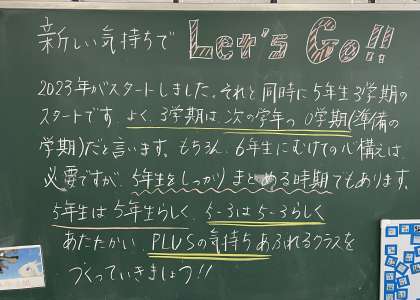 新しい気持ちで Let's Go!!
2023年がスタートしました。それと同時に5年生3学期の
スタートです。よく、3学期は、次の学年の0学期(準備の
学期)だと言います。もちろん、6年生にむけての心構えは
必要ですが、5年生をしっかりまとめる時期でもあります。
5年生は5年生らしく、5-3は5-3らしく
あたたかい、PLUSの気持ちあふれるクラスを
つくっていきましょう!!